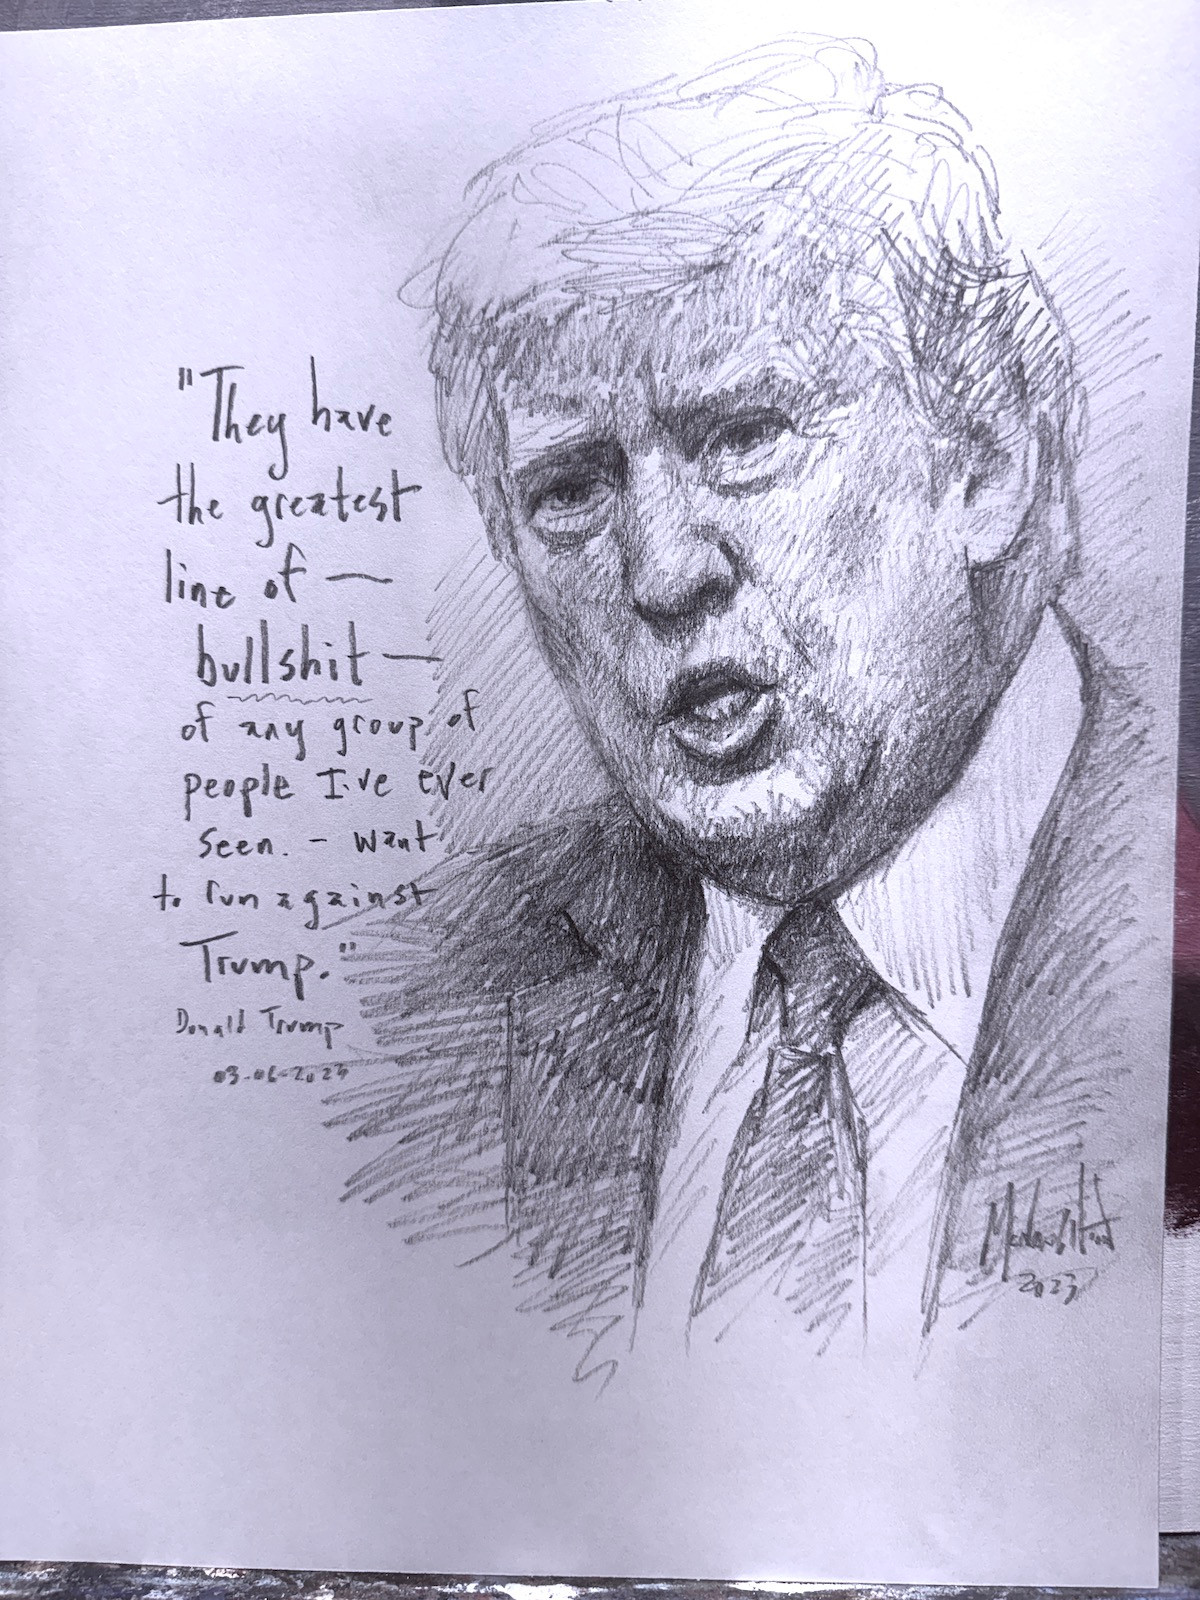 "They have
the greatest
line of —
bullshit —
of any group of
people I've ever
seen. - want
to run against
Trump."
Donald Trump
03-06-2023
2023